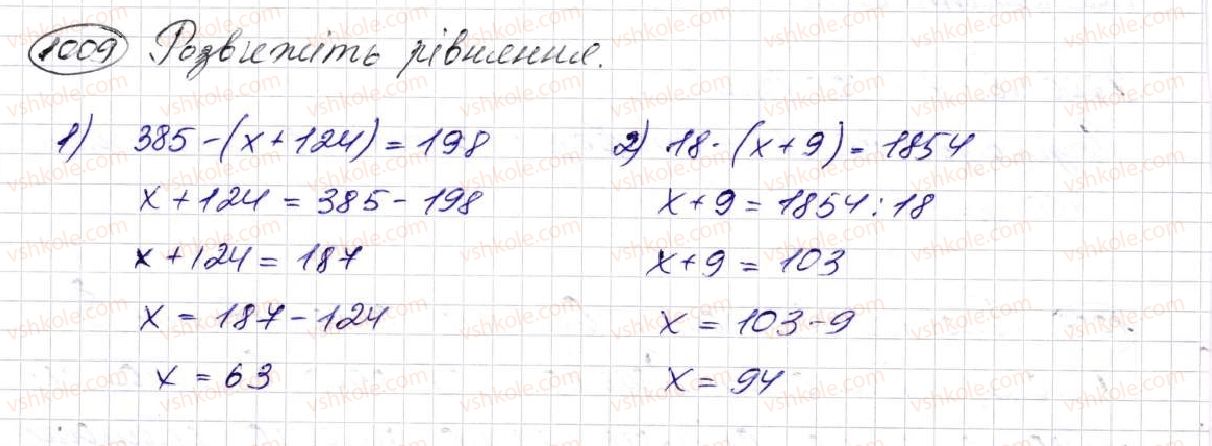 1009 Розв'яжіть рівняння.
1) 385-(x+124)=198
x+124=385-198
x+124=187
x=187-124
x=63
2) 18·(x+9)=1854
x+9=1854:18
x+9=103
x=103-9
x=94